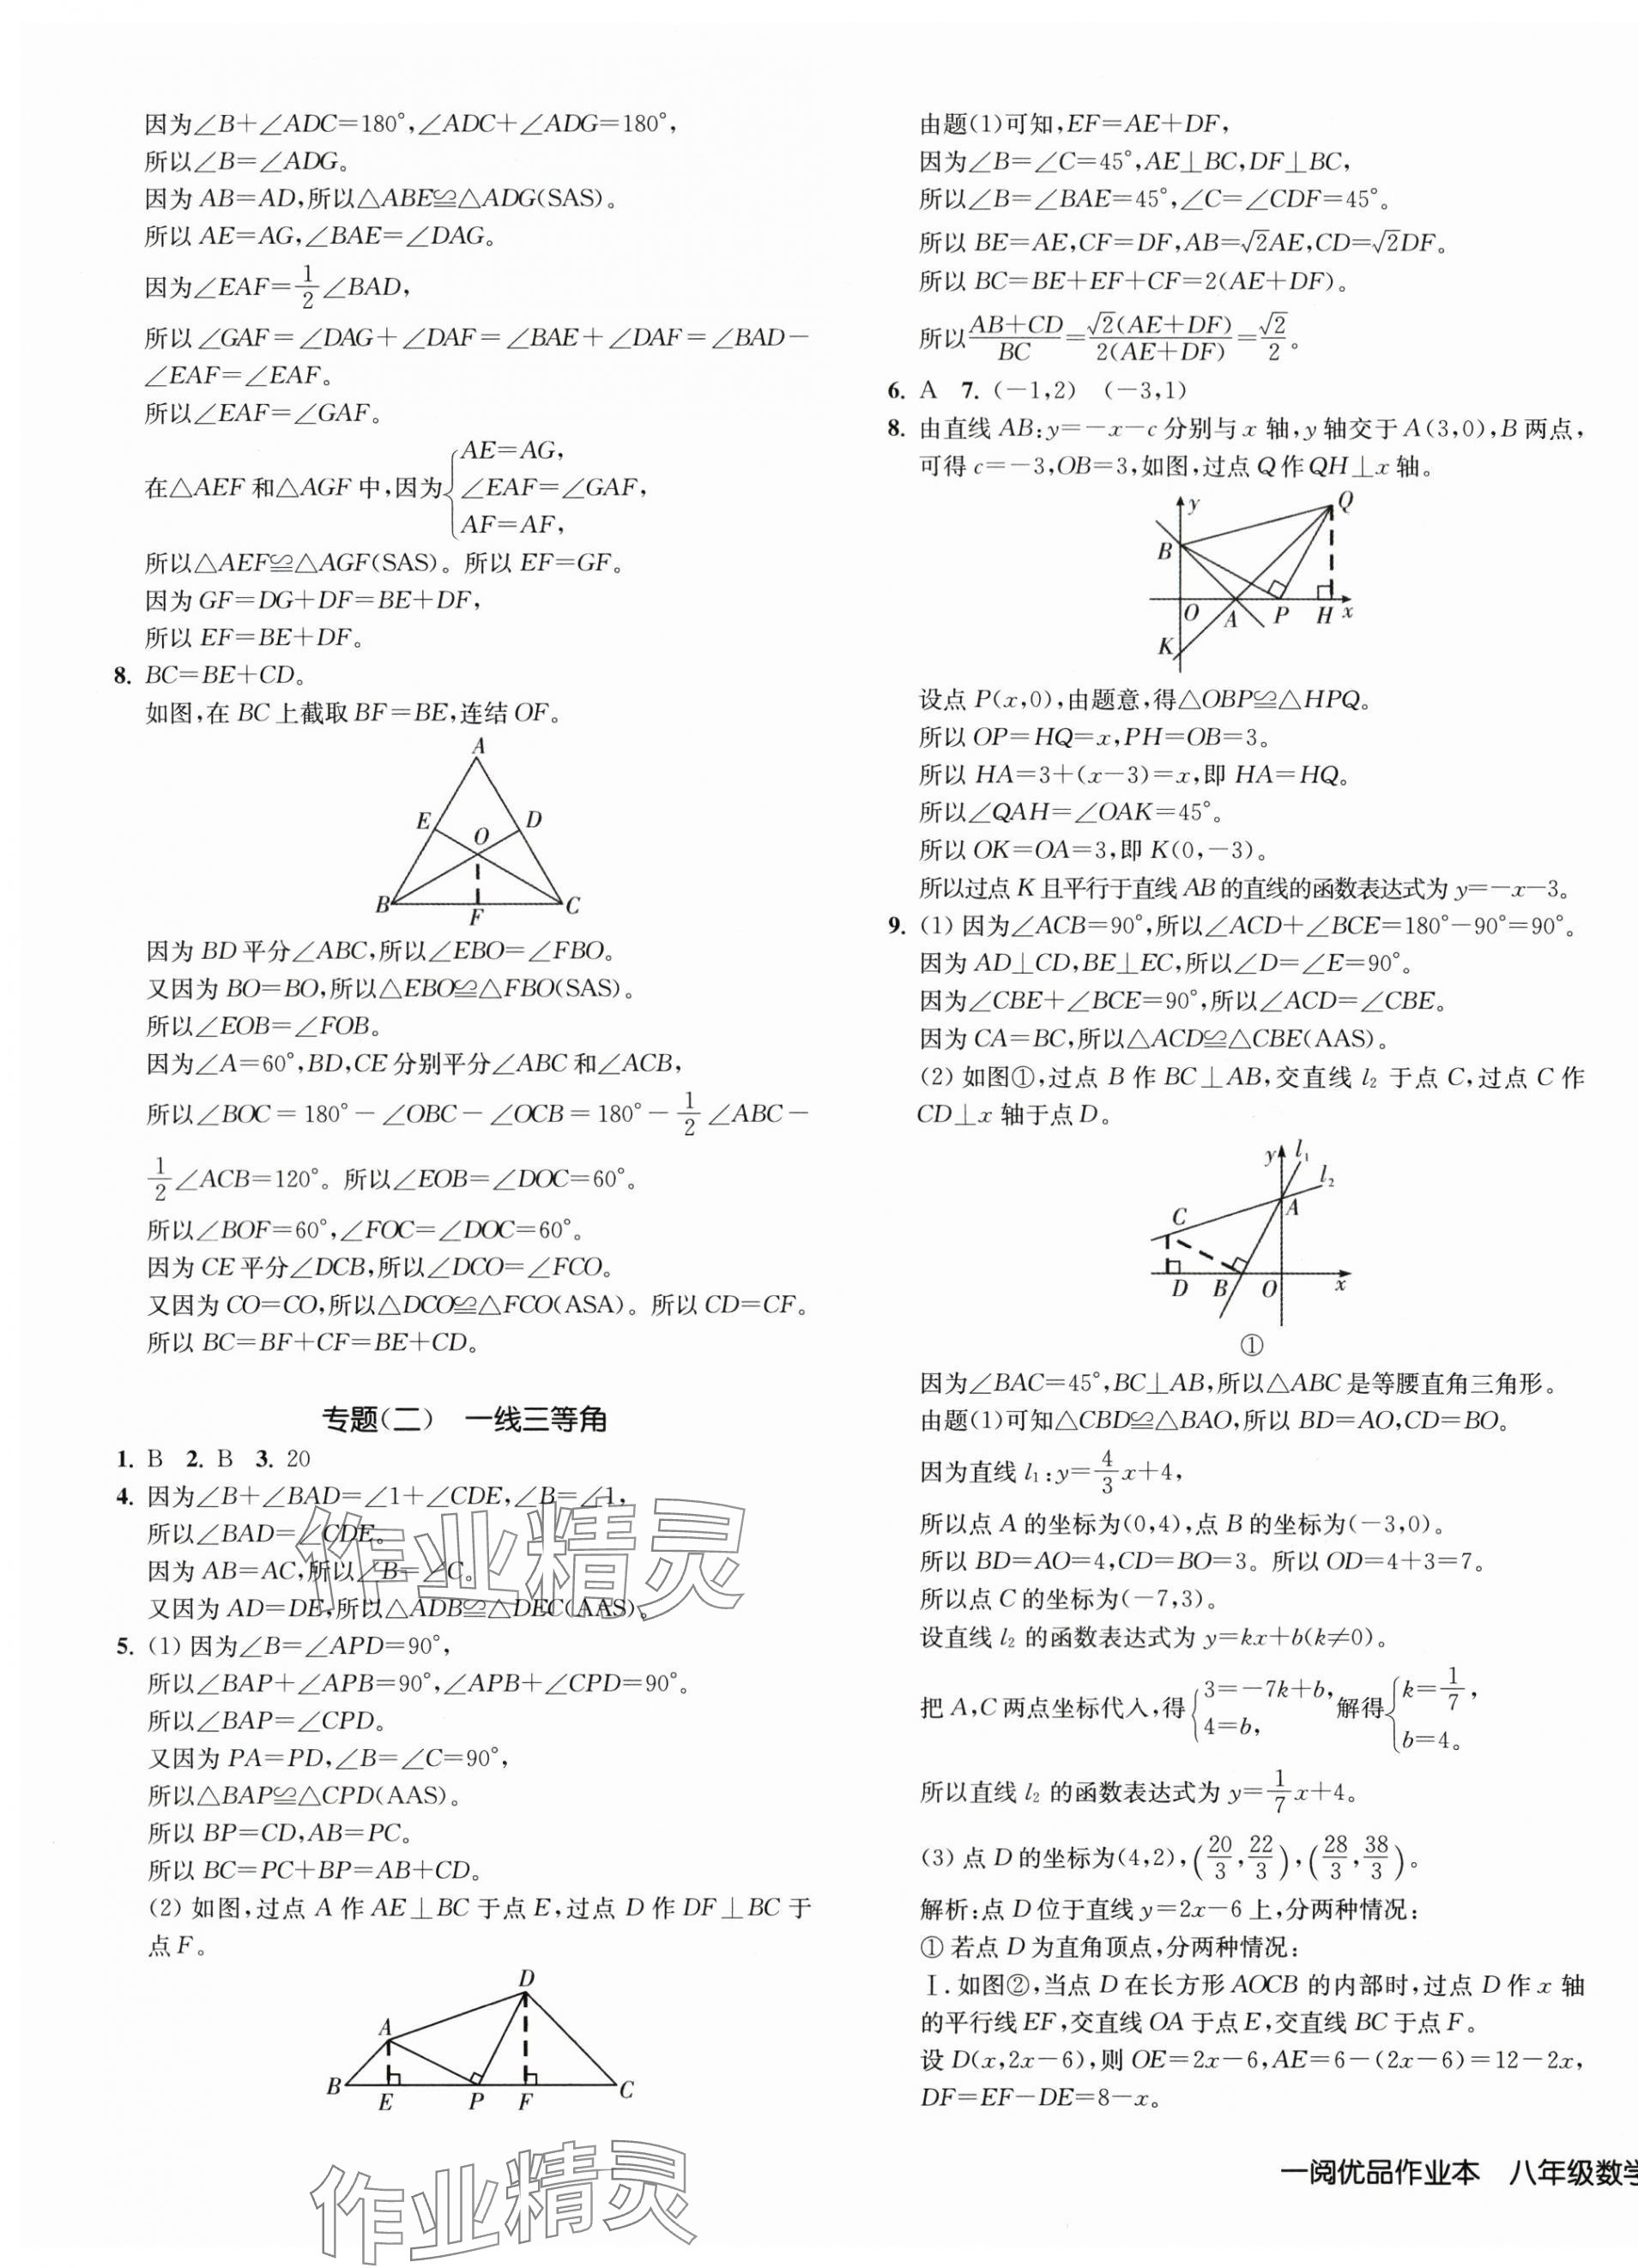 因为∠B+∠ADC=180°,∠ADC+∠ADG=180°,
所以∠B=∠ADG。
因为 AB=AD,所以△ABE≌△ADG(SAS)。
所以 AE=AG,∠BAE=∠DAG。
因为∠EAF=1/2∠BAD,
所以∠GAF=∠DAG+∠DAF=∠BAE+∠DAF=∠BAD-
∠EAF=∠EAF。
所以∠EAF=∠GAF。
在△AEF 和△AGF 中,因为{AE=AG,
∠EAF=∠GAF,
AF=AF,
所以△AEF≌△AGF(SAS)。所以 EF=GF。
因为 GF=DG+DF=BE+DF,
所以 EF=BE+DF。
8. BC=BE+CD。
如图,在 BC 上截取 BF=BE,连结 OF。
A
E D
O
B F C
因为 BD 平分∠ABC,所以∠EBO=∠FBO。
又因为 BO=BO,所以△EBO≌△FBO(SAS)。
所以∠EOB=∠FOB。
因为∠A=60°,BD,CE 分别平分∠ABC 和∠ACB,
所以∠BOC=180°-∠OBC-∠OCB=180°-1/2∠ABC-
1/2∠ACB=120°。所以∠EOB=∠DOC=60°。
所以∠BOF=60°,∠FOC=∠DOC=60°。
因为 CE 平分∠DCB,所以∠DCO=∠FCO。
又因为 CO=CO,所以△DCO≌△FCO(ASA)。所以 CD=CF。
所以 BC=BF+CF=BE+CD。
专题(二) 一线三等角
1. B 2. B 3. 20
4. 因为∠B+∠BAD=∠1+∠CDE,∠B=∠1,
所以∠BAD=∠CDE。
因为 AB=AC,所以∠B=∠C。
又因为 AD=DE,所以△ADB≌△DEC(AAS)。
5. (1) 因为∠B=∠APD=90°,
所以∠BAP+∠APB=90°,∠APB+∠CPD=90°。
所以∠BAP=∠CPD。
又因为 PA=PD,∠B=∠C=90°,
所以△BAP≌△CPD(AAS)。
所以 BP=CD,AB=PC。
所以 BC=PC+BP=AB+CD。
(2) 如图,过点 A 作 AE⊥BC 于点 E,过点 D 作 DF⊥BC 于
点 F。
D
A
B E P F C
作业精灵
作业精灵
由题(1)可知,EF=AE+DF,
因为∠B=∠C=45°,AE⊥BC,DF⊥BC,
所以∠B=∠BAE=45°,∠C=∠CDF=45°。
所以 BE=AE,CF=DF,AB=√2AE,CD=√2DF。
所以 BC=BE+EF+CF=2(AE+DF)。
所以(AB+CD)/BC=√2(AE+DF)/2(AE+DF)=√2/2。
6. A 7. (-1,2) (-3,1)
8. 由直线 AB:y=-x-c 分别与 x 轴,y 轴交于 A(3,0),B 两点,
可得 c=-3,OB=3,如图,过点 Q 作 QH⊥x 轴。
y Q
B
O A P H x
K
设点 P(x,0),由题意,得△OBP≌△HPQ。
所以 OP=HQ=x,PH=OB=3。
所以 HA=3+(x-3)=x,即 HA=HQ。
所以∠QAH=∠OAK=45°。
所以 OK=OA=3,即 K(0,-3)。
所以过点 K 且平行于直线 AB 的直线的函数表达式为 y=-x-3。
9. (1) 因为∠ACB=90°,所以∠ACD+∠BCE=180°-90°=90°。
因为 AD⊥CD,BE⊥EC,所以∠D=∠E=90°。
因为∠CBE+∠BCE=90°,所以∠ACD=∠CBE。
因为 CA=BC,所以△ACD≌△CBE(AAS)。
(2) 如图①,过点 B 作 BC⊥AB,交直线 l₂ 于点 C,过点 C 作
CD⊥x 轴于点 D。
y l₁
l₂
C A
D B O x
①
因为∠BAC=45°,BC⊥AB,所以△ABC 是等腰直角三角形。
由题(1)可知△CBD≌△BAO,所以 BD=AO,CD=BO。
因为直线 l₁:y=4/3x+4,
所以点 A 的坐标为(0,4),点 B 的坐标为(-3,0)。
所以 BD=AO=4,CD=BO=3。所以 OD=4+3=7。
所以点 C 的坐标为(-7,3)。
设直线 l₂ 的函数表达式为 y=kx+b(k≠0)。
把 A,C 两点坐标代入,得{3=-7k+b, 4=b, 解得{k=1/7, b=4。
所以直线 l₂ 的函数表达式为 y=1/7x+4。
(3) 点 D 的坐标为(4,2),(20/3,22/3),(28/3,38/3)。
解析:点 D 位于直线 y=2x-6 上,分两种情况:
① 若点 D 为直角顶点,分两种情况:
Ⅰ.如图②,当点 D 在长方形 AOCB 的内部时,过点 D 作 x 轴
的平行线 EF,交直线 OA 于点 E,交直线 BC 于点 F。
设 D(x,2x-6),则 OE=2x-6,AE=6-(2x-6)=12-2x,
DF=EF-DE=8-x。
一阅优品作业本 八年级数学